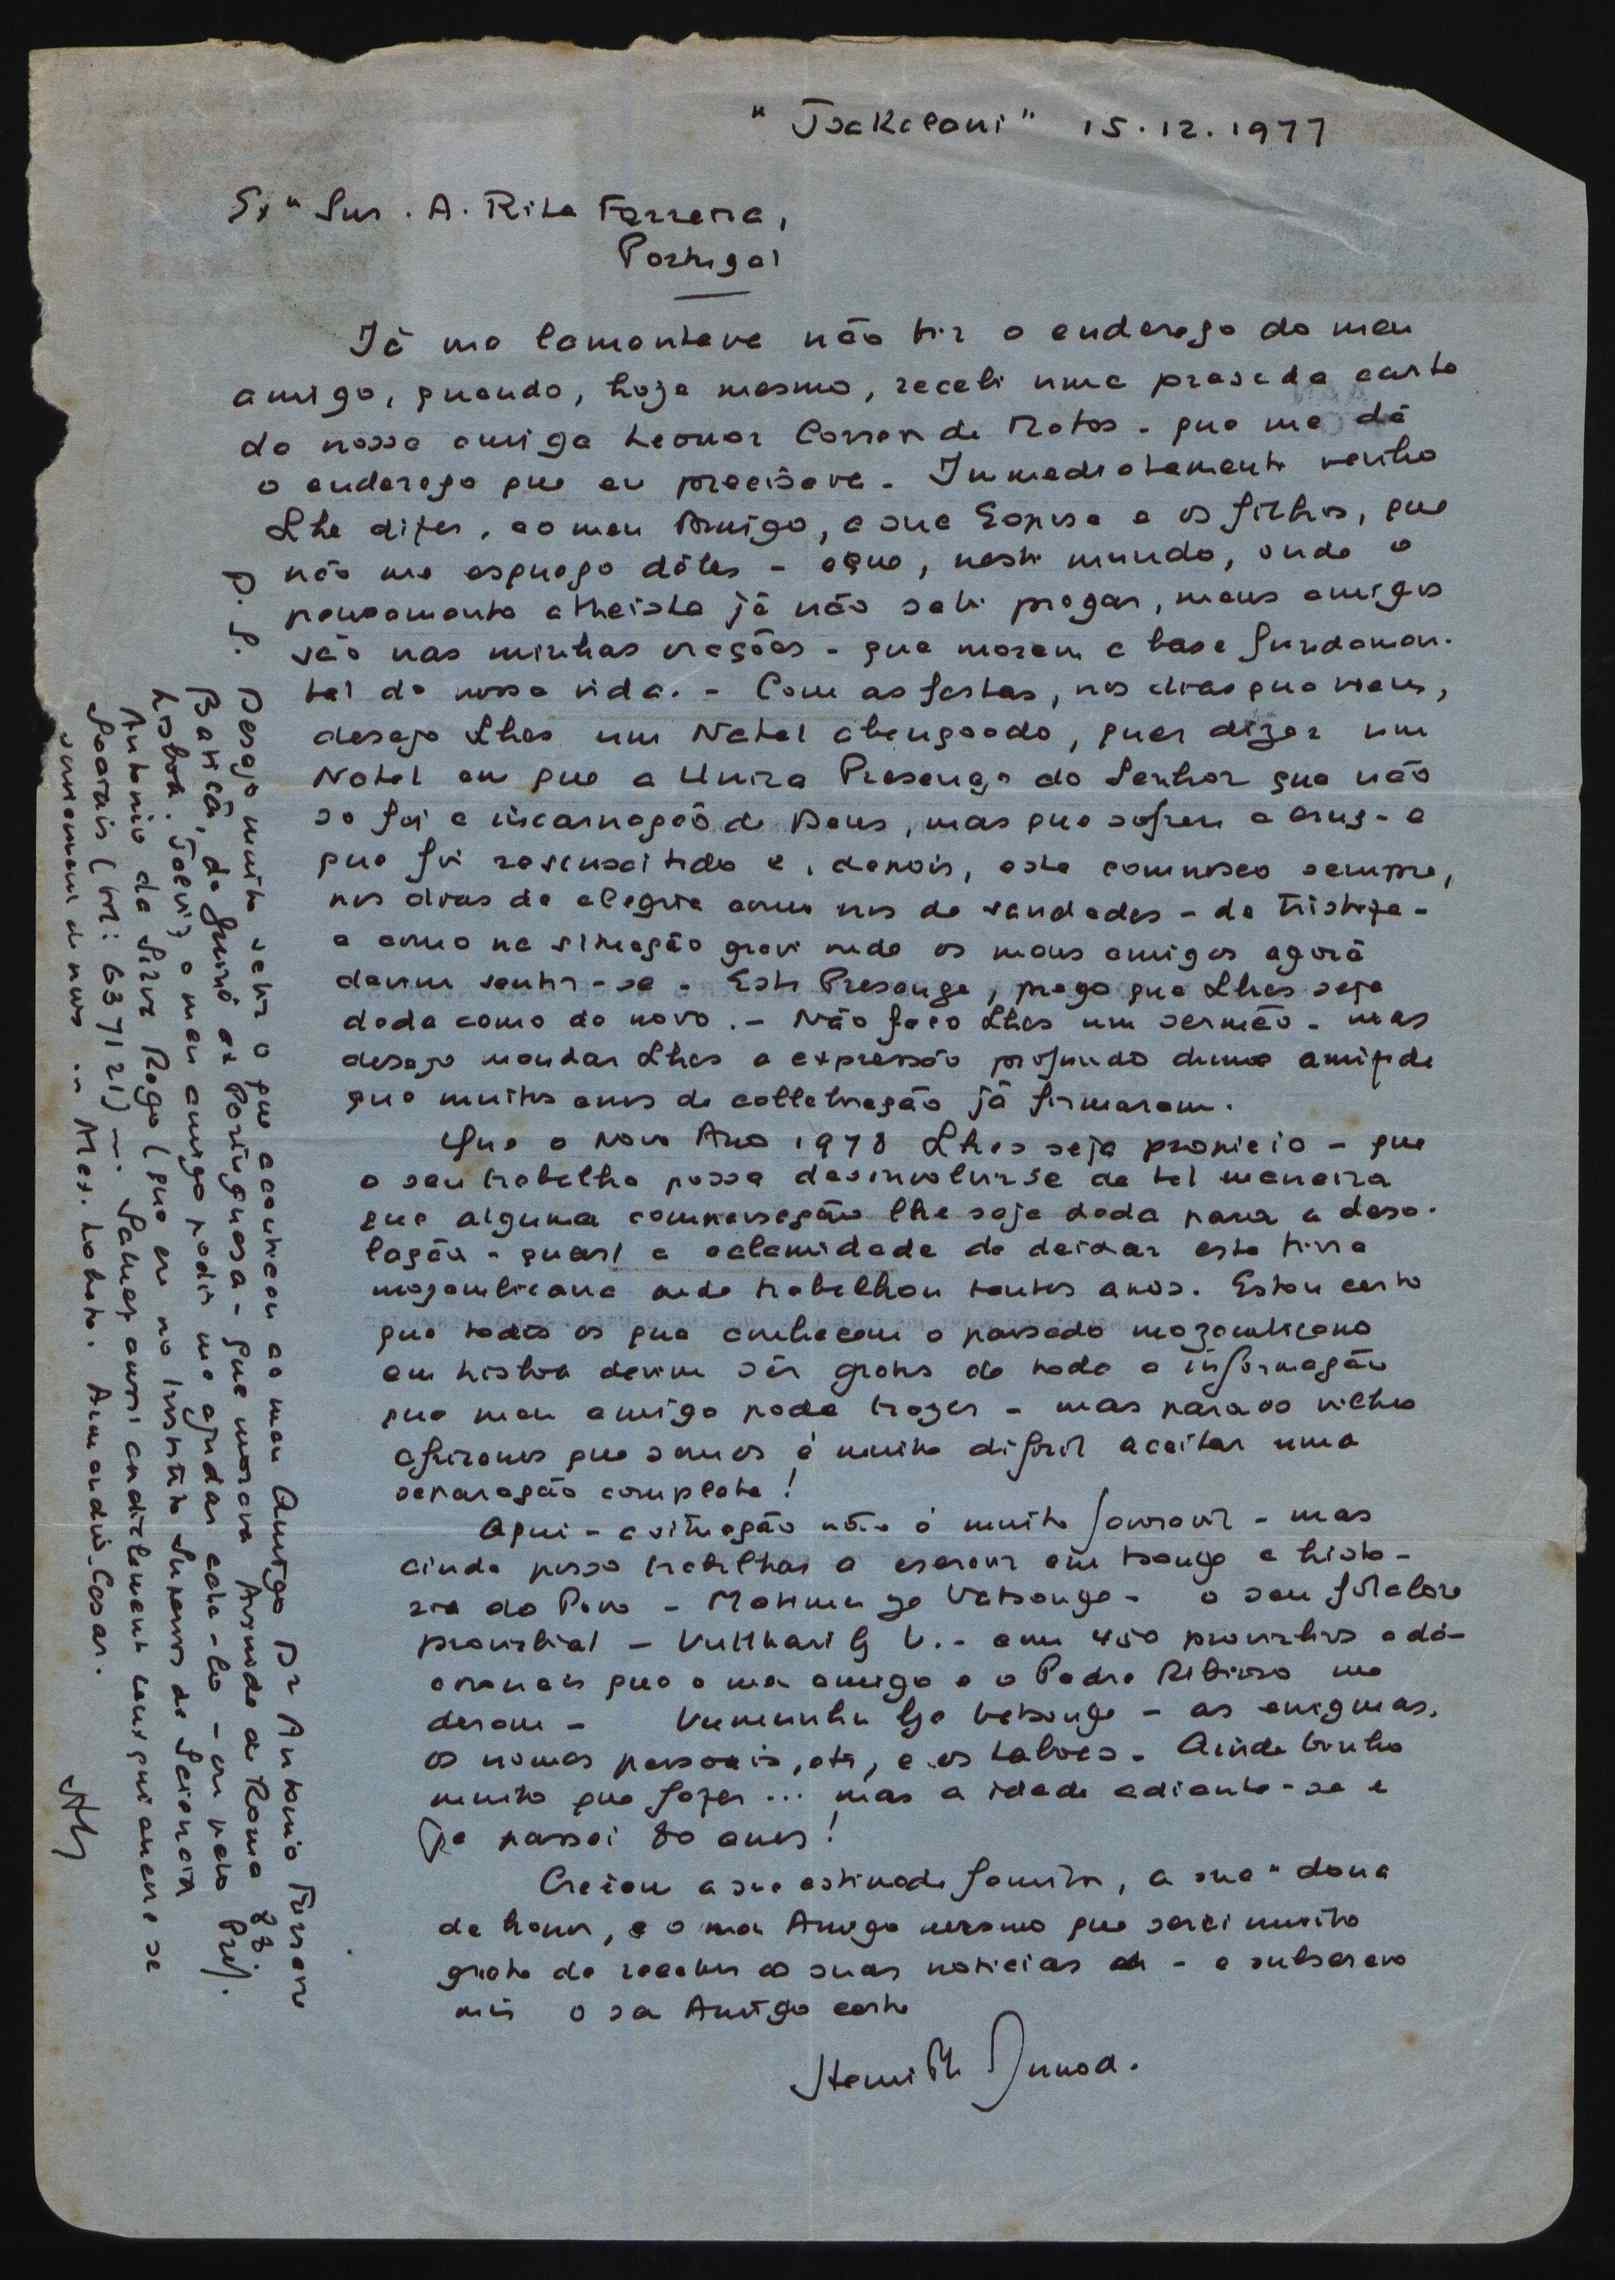 "Tsakelani" 15.12.1977
Exº Snr. A. Rita Ferreira,
Portugal
Já me lamentava não ter o endereço do meu
amigo, quando, hoje mesmo, recebi uma prezada carta
da nossa amiga Leonor Correia de Matos - que me dá
o endereço que eu precisava - Immediatamente venho
Lhe dizer, ao meu Amigo, a sua Esposa e os filhos, que
não me esqueço dêles - e que, neste mundo, onde o
pensamento atheista já não sabe pregar, meus amigos
são nas minhas orações - que moram a base fundamen-
tal da nossa vida. - Com as festas, nos dias que vem,
desejo Lhes um Natal abençoado, quer dizer um
Natal em que a Unica Presença do Senhor que não
so foi a incarnação de Deus, mas que sofreu a cruz - e
que foi ressuscitado e, depois, esta comnosco sempre,
nos dias de alegria como nos de saudades - de tristeza -
e como na situação grave onde os meus amigos agora
devem sentir-se - Esta Presença, prego que Lhes seja
dada como de novo. - Não faço Lhes um sermão - mas
desejo mandar Lhes a expressão profundo duma amizade
que muitos anos de collaboração já firmaram.
Que o Novo Ano 1978 Lhes seja propicio - que
o seu trabalho possa desinvolvirse de tal maneira
que alguma compensação lhe seja dada para a deso-
lação - quasi a calamidade de deixar esta terra
moçambicana onde trabalhou tantos anos. Estou certo
que todos os que conhecem o passado moçambicano
em Lisboa devem sêr gratos de toda a informação
que meu amigo pode trazer - mas para os velhos
africanos que somos é muito dificil aceitar uma
separação completa!
Aqui - a situação não é muito favoravel - mas
ainda posso trabalhar a escrever em tsonga a histo-
ria do Povo - Matimu ya Vatsonga - o seu folclore
proverbial - Vutlhari by V. - com 450 proverbios adi-
cionais que o meu amigo e o Padre Ribeiro me
deram - Vumunhu bya Vatsonga - as enigmas,
os nomes pessoais, etc, e os taboos - Ainda tenho
muito que fazer ... mas a idade adianta-se e
ja passei 80 anos!
Creiam a sua estimada familia, a sua "dona
de honor, e o meu Amigo mesmo que serei muito
grato de receber as suas noticias - e subscrevo
me o seu Amigo certo
Henri Ph Junod.
P.S. Desejo muito saber o que aconteceu ao meu Amigo Dr Antonio
Baticã, da Guiné ex Portuguesa - que morava Avenida de Roma
Lisboa. Talvez o meu amigo podia me ajudar acha-lo - ou pelo Prof.
Antonio da Silva Rego (que era no Instituto Superior de Sciencias
Sociais (tel: 637121)